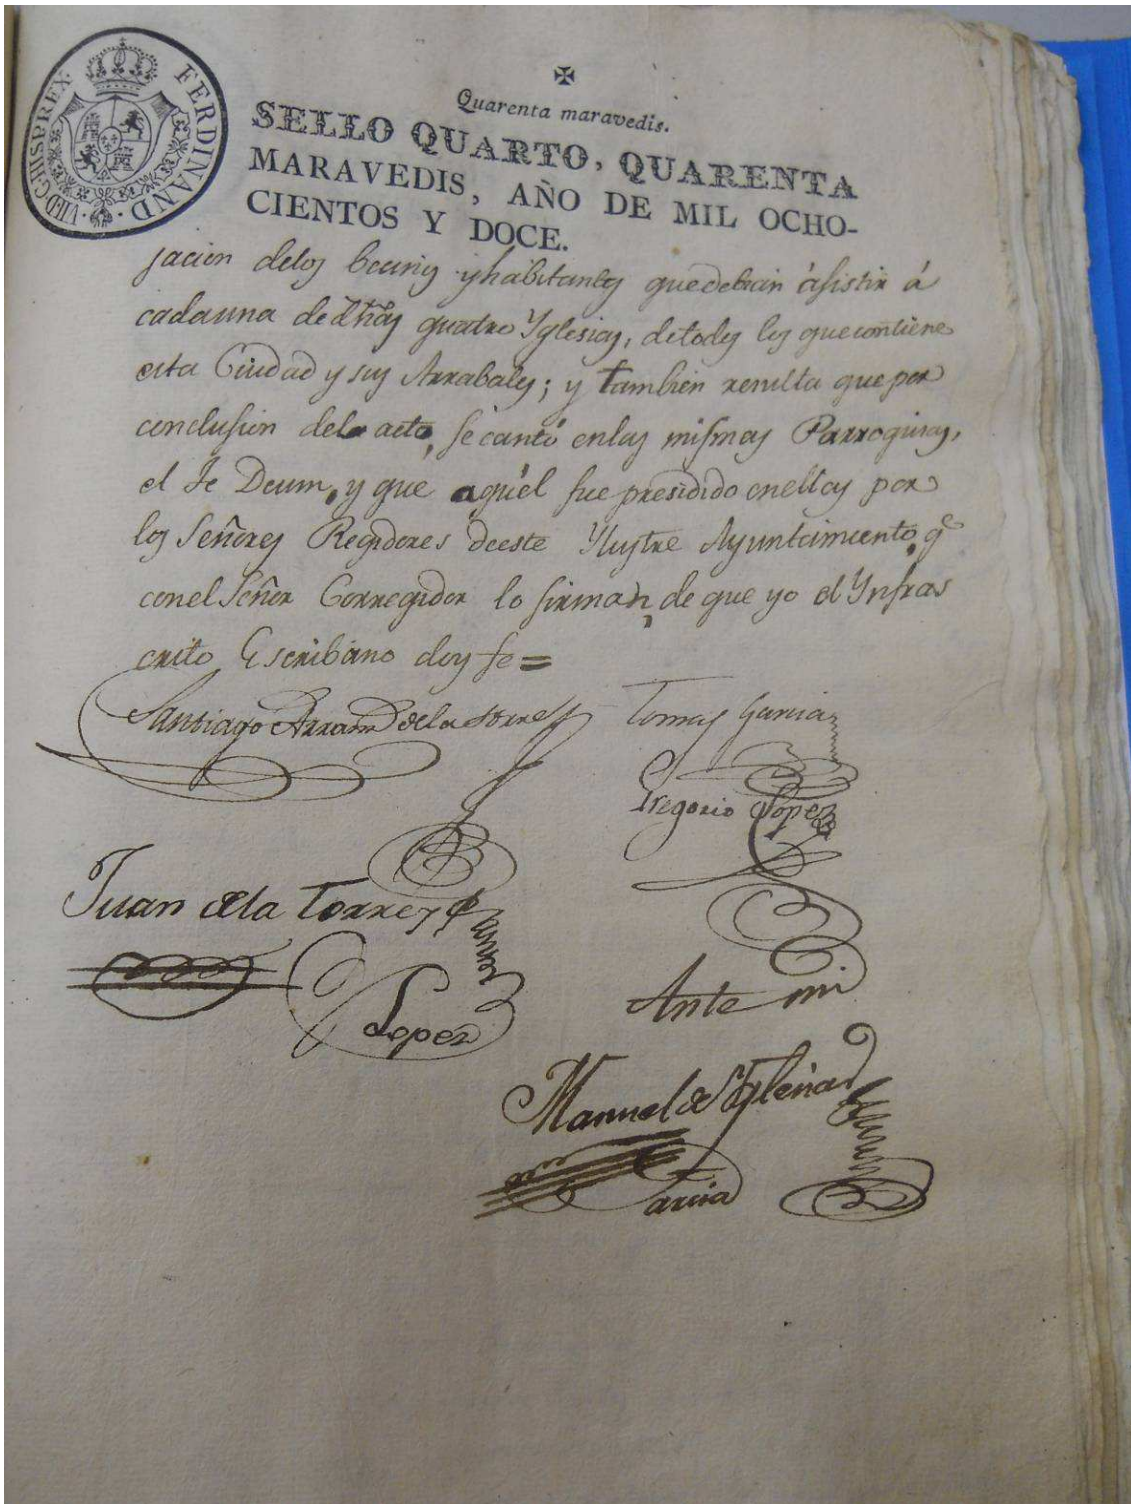 FERDINAND · VII · D · G · HISP · REX ·
✠
Quarenta maravedis.
SELLO QUARTO, QUARENTA
MARAVEDIS, AÑO DE MIL OCHO-
CIENTOS Y DOCE.
sacion delos becinos y habitantes que debian ásistir á
cada una de dhas quatro Yglesias, detodos los que contiene
esta Ciudad y sus Arrabales; y tambien resulta que por
conclusion del acto, se cantó enlas mismas Parroquias,
el Te Deum, y que aquél fue presidido enellas por
los Señores Regidores deeste Ylustre Ayuntamiento, qe
conel Señor Corregidor lo firman, de que yo el Ynfras
crito Escribano doy fe =
Santiago de la Torre
Tomas Garcia
Gregorio Lopez
Juan dela Torre y
Lopez
Ante mi
Manuel de Yglesias
Garcia